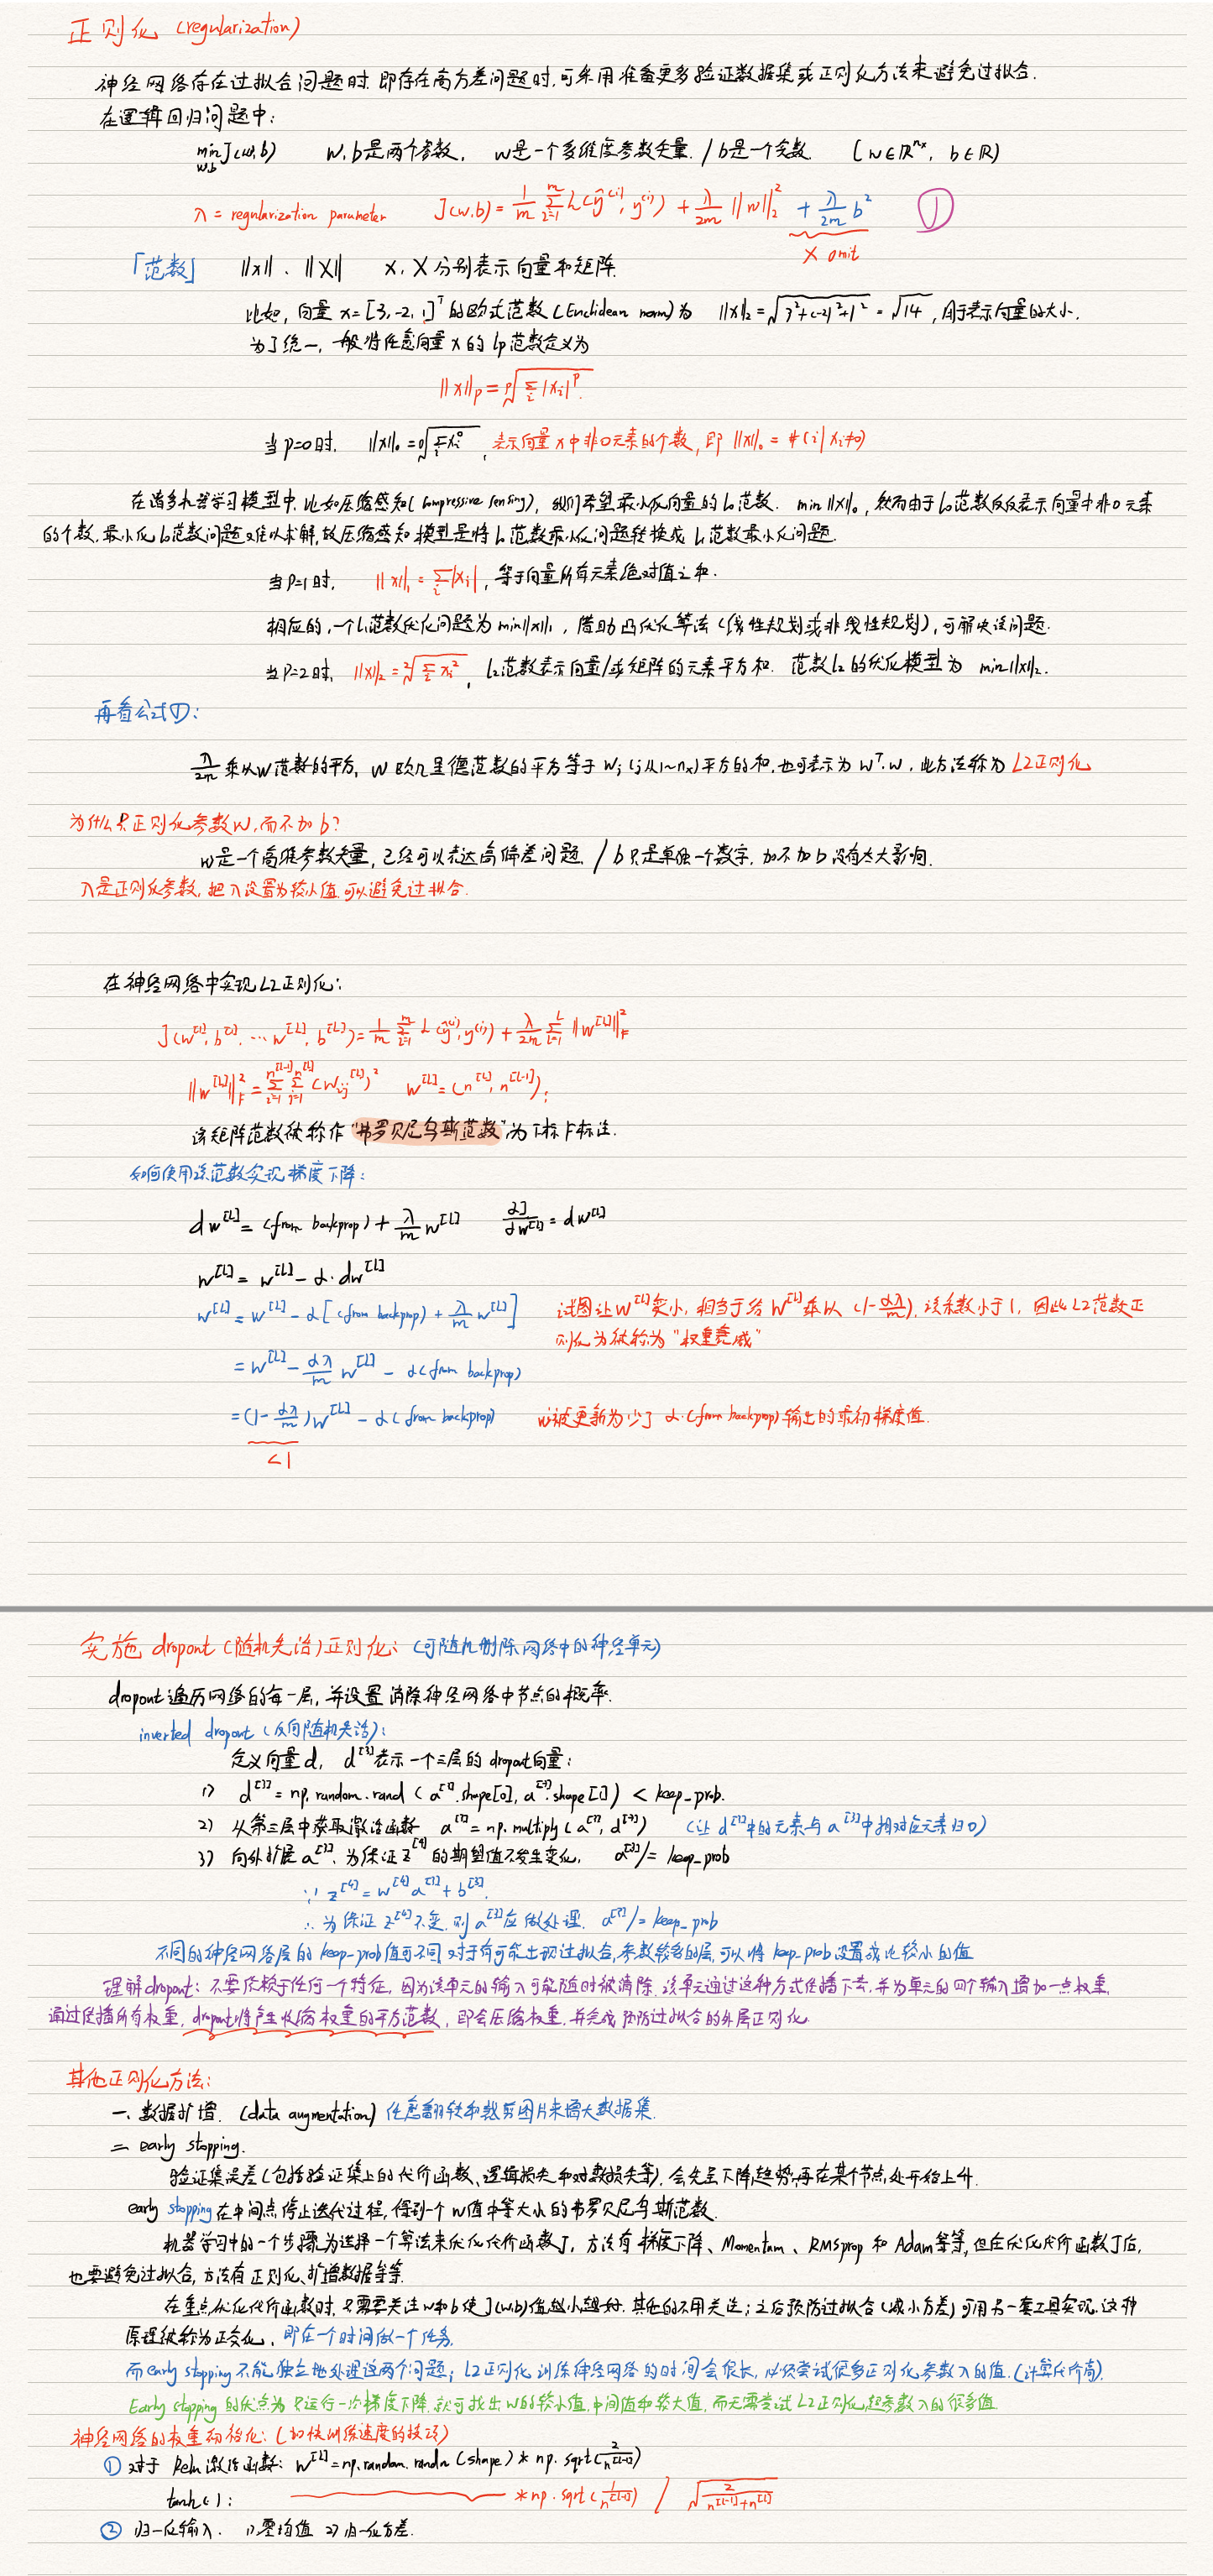 正则化 (regularization)
神经网络存在过拟合问题时,即存在高方差问题时,可采用准备更多验证数据集或正则化方法来避免过拟合.
在逻辑回归问题中:
min J(w,b) w,b是两个参数, w是一个多维度参数矢量. / b是一个实数. (w∈ℝⁿˣ, b∈ℝ)
w,b
λ = regularization parameter J(w,b) = 1/m Σ_{i=1}^{m} L(ŷ^(i), y^(i)) + λ/2m ||w||₂² + λ/2m b² ①
× omit
「范数」 ||x||、||X|| x、X分别表示向量和矩阵.
比如, 向量 x=[3,-2,1]ᵀ的欧式范数(Euclidean norm)为 ||x||₂=√(3²+(-2)²+1²) = √14, 用于表示向量的大小.
为了统一,一般将任意向量x的lp范数定义为
||x||p = ᵖ√(Σᵢ|xᵢ|ᵖ).
当p=0时, ||x||₀=⁰√(Σxᵢ⁰), 表示向量x中非0元素的个数, 即||x||₀ = #(i|xᵢ≠0)
在诸多机器学习模型中,比如压缩感知(compressive sensing), 我们希望最小化向量的l₀范数. min||x||₀, 然而由于l₀范数仅仅表示向量中非0元素
的个数,最小化l₀范数问题难以求解,故压缩感知模型是将l₀范数最小化问题转换成l₁范数最小化问题.
当P=1时, ||x||₁=Σᵢ|xᵢ|, 等于向量所有元素绝对值之和.
相应的,一个l₁范数优化问题为min||x||₁, 借助凸优化算法(线性规划或非线性规划),可解决该问题.
当P=2时, ||x||₂=²√(Σᵢxᵢ²), l₂范数表示向量/或矩阵的元素平方和. 范数l₂的优化模型为 min||x||₂.
再看公式①:
λ/2m 乘以W范数的平方, W欧几里德范数的平方等于wⱼ(j从1~nx)平方的和,也可表示为wᵀ·w, 此方法称为 L2正则化
为什么只正则化参数W,而不加b?
w是一个高维参数矢量,已经可以表达高偏差问题. / b只是单独一个数字, 加不加b没有太大影响.
λ是正则化参数, 把λ设置为较小值,可以避免过拟合.
在神经网络中实现L2正则化:
J(w^[1], b^[1], … w^[L], b^[L]) = 1/m Σ_{i=1}^{m} L(ŷ^(i), y^(i)) + λ/2m Σ_{l=1}^{L} ||w^[l]||_F²
||w^[l]||_F² = Σ_{i=1}^{n^[l-1]} Σ_{j=1}^{n^[l]} (w_ij^[l])² w^[l]=(n^[l], n^[l-1]);
该矩阵范数被称作“弗罗贝尼乌斯范数”为下标F标注.
如何使用该范数实现梯度下降:
dw^[l] = (from backprop) + λ/m w^[l] ∂J/∂w^[l] = dw^[l]
w^[l] = w^[l] - α·dw^[l]
w^[l] = w^[l] - α[(from backprop) + λ/m w^[l]] 试图让W^[l]变小, 相当于给W^[l]乘以 (1-αλ/m), 该系数小于1, 因此L2范数正
则化为被称为“权重衰减”
= w^[l] - αλ/m w^[l] - α(from backprop)
= (1-αλ/m)w^[l] - α(from backprop) w被更新为少了α·(from backprop)输出的最初梯度值.
<1
实施 dropout (随机失活)正则化: (可随机删除网络中的神经单元)
dropout遍历网络的每一层, 并设置消除神经网络中节点的概率.
inverted dropout (反向随机失活):
定义向量d, d^[3]表示一个三层的dropout向量:
1) d^[3] = np.random.rand(a^[3].shape[0], a^[3].shape[1]) < keep_prob.
2) 从第三层中获取激活函数 a^[3] = np.multiply(a^[3], d^[3]) (让d^[3]中的元素与a^[3]中相对应元素归0)
3) 向外扩展a^[3], 为保证z^[4]的期望值不发生变化, a^[3]/= keep_prob
∵ z^[4] = w^[4]a^[3]+b^[3].
∴ 为保证z^[4]不变, 则a^[3]应做处理. a^[3]/= keep_prob
不同的神经网络层的keep_prob值可不同,对于有可能出现过拟合,参数较多的层,可以将keep_prob设置成比较小的值
理解dropout: 不要依赖于任何一个特征, 因为该单元的输入可能随时被清除,该单元通过这种方式传播下去,并为单元的四个输入增加一点权重,
通过传播所有权重, dropout将产生收缩权重的平方范数, 即会压缩权重,并完成预防过拟合的外层正则化.
其他正则化方法:
一、数据扩增. (data augmentation) 任意翻转和裁剪图片来增大数据集.
二 early stopping.
验证集误差(包括验证集上的代价函数、逻辑损失和对数损失等), 会先呈下降趋势,再在某个节点处开始上升.
early stopping 在中间点停止迭代过程, 得到一个w值中等大小的弗罗贝尼乌斯范数.
机器学习中的一个步骤为选择一个算法来优化代价函数J, 方法有梯度下降、Momentum、RMSprop 和 Adam等等,但在优化代价函数J后,
也要避免过拟合,方法有正则化、扩增数据等等.
在重点优化代价函数时,只需要关注w和b使J(w,b)值越小越好, 其他的不用关注; 之后预防过拟合(减小方差)可用另一套工具实现,这种
原理被称为正交化, 即在一个时间做一个任务.
而early stopping不能独立地处理这两个问题; L2正则化训练神经网络的时间会很长, 必须尝试很多正则化参数λ的值.(计算代价高).
Early stopping 的优点为只运行一次梯度下降,就可找出W的较小值,中间值和较大值, 而无需尝试L2正则化超参数λ的很多值.
神经网络的权重初始化: (加快训练速度的技巧)
① 对于Relu激活函数: W^[l] = np.random.randn(shape) * np.sqrt(2/n^[l-1])
tanh(): * np.sqrt(1/n^[l-1]) / √(2/(n^[l-1]+n^[l]))
② 归一化输入. 1)零均值 2)归一化方差.